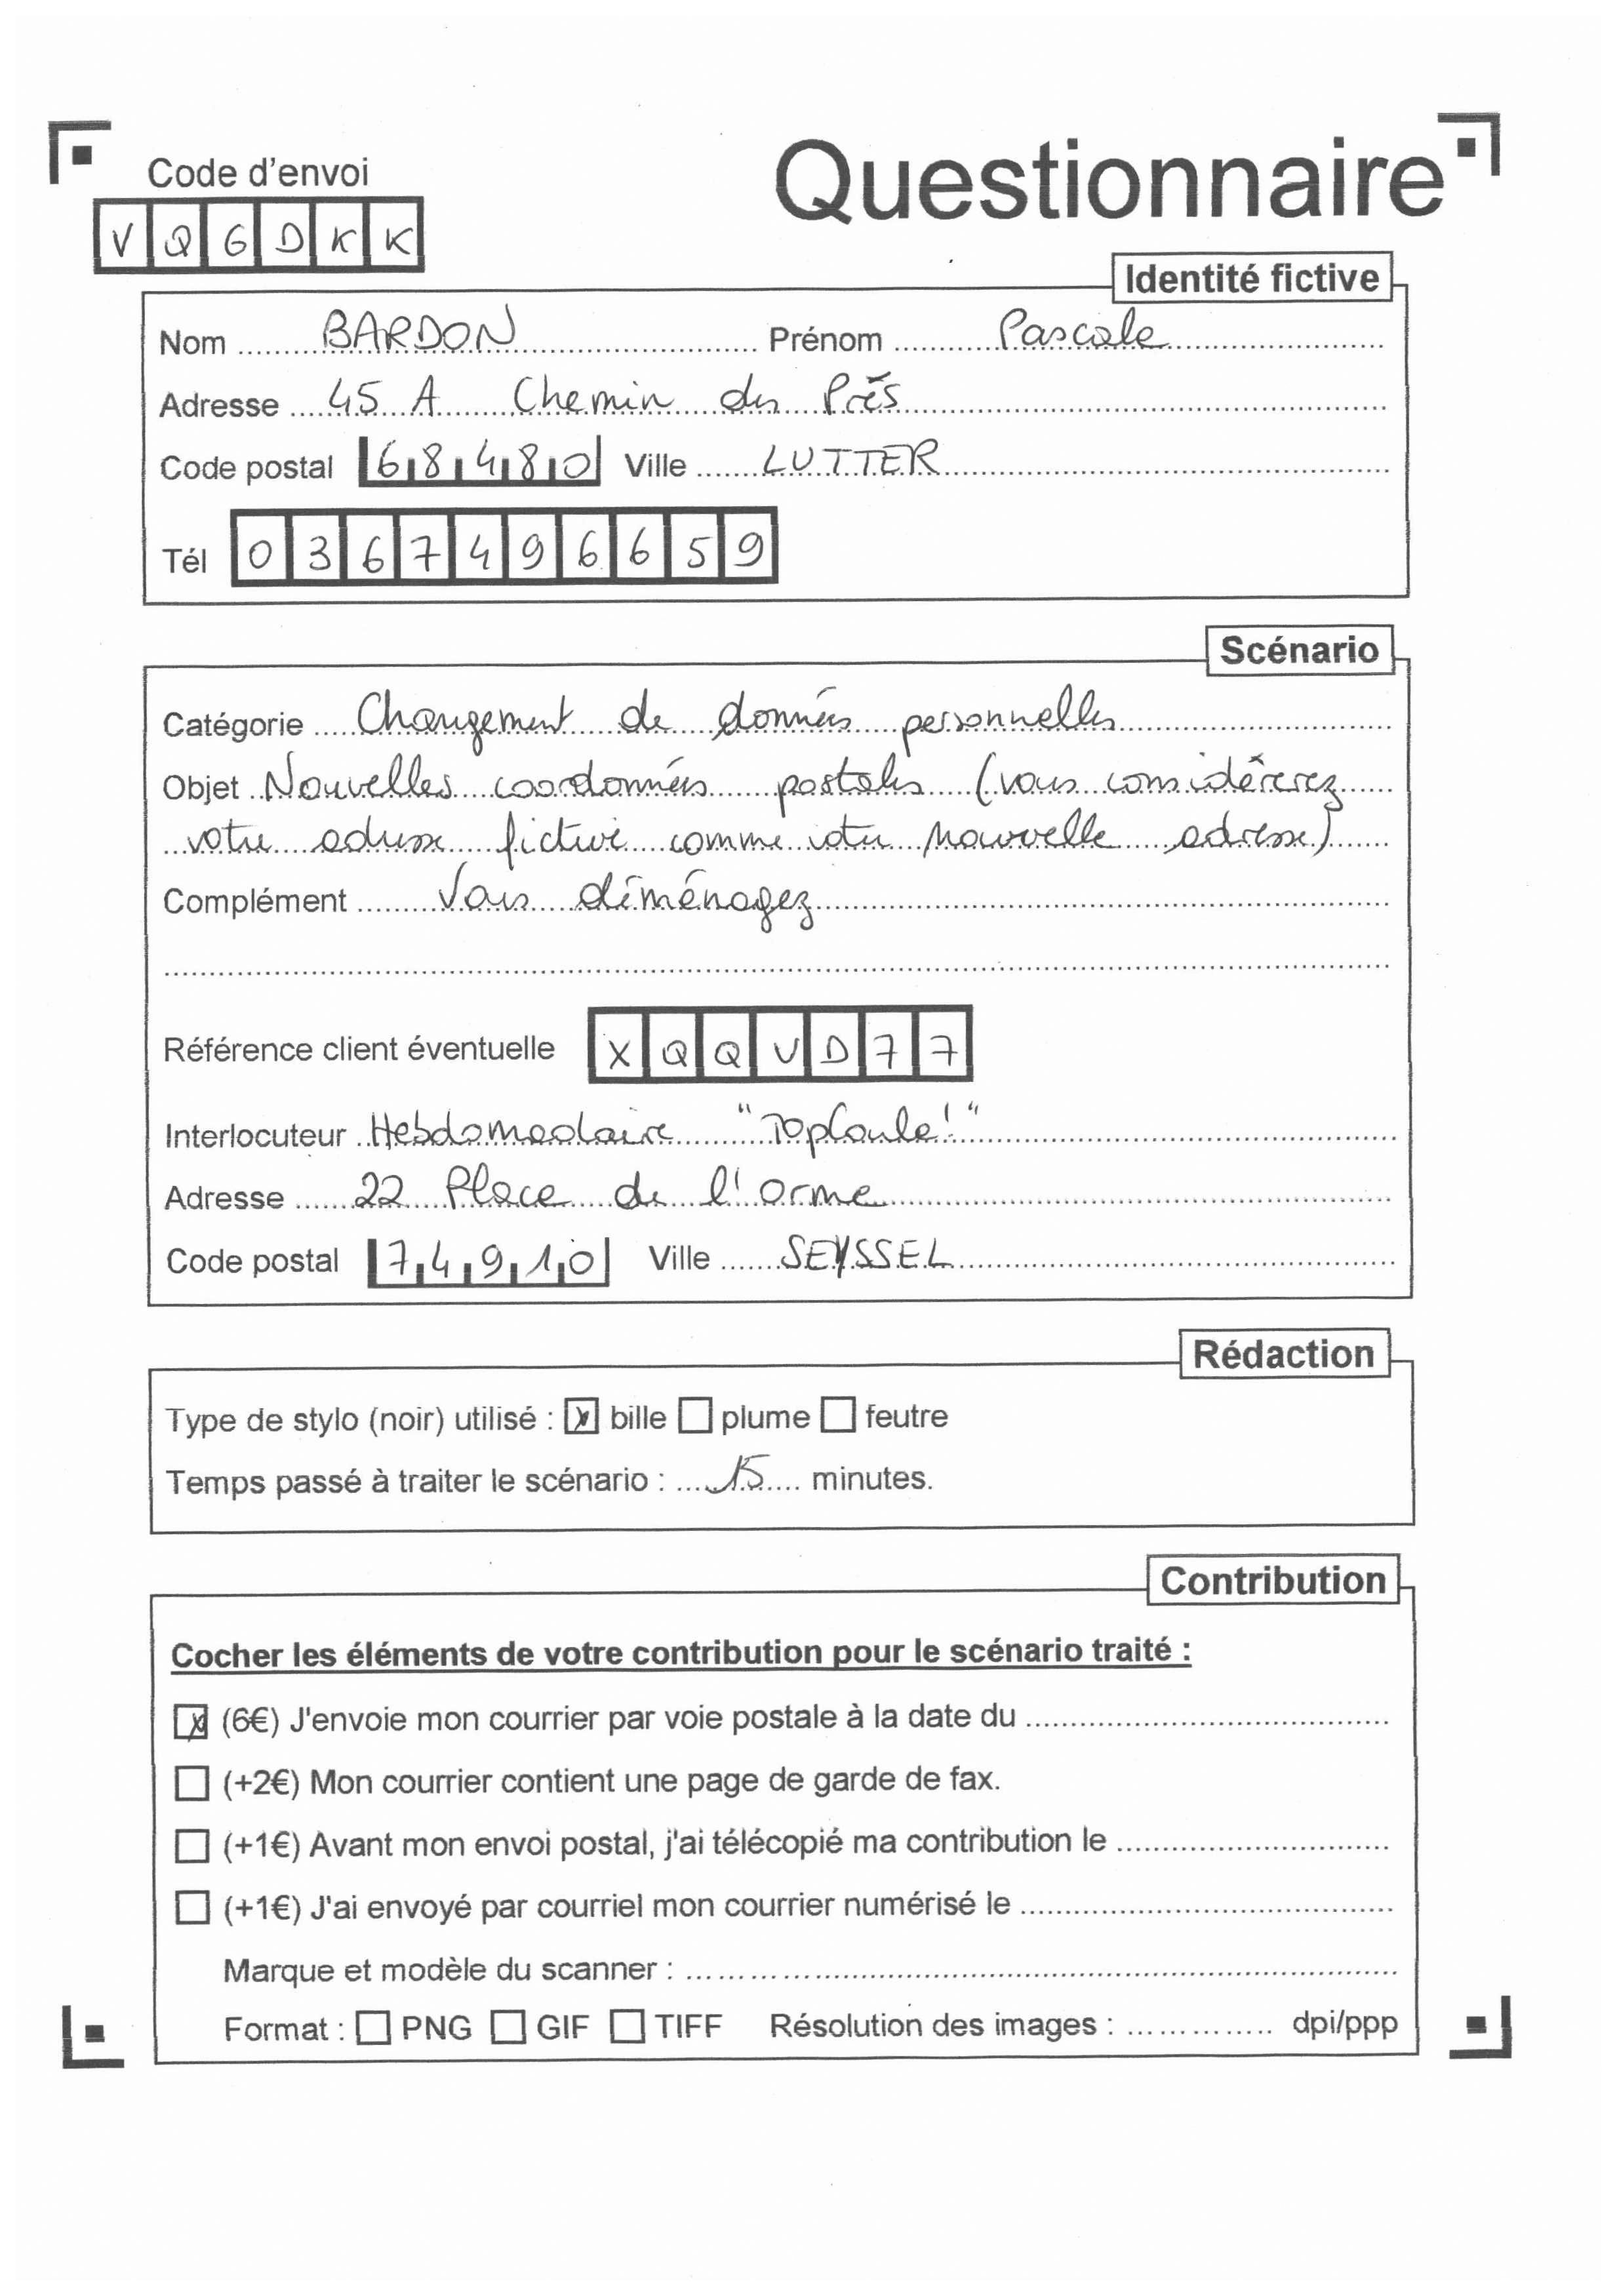 Code d'envoi
Questionnaire
V Q G D K K
Identité fictive
Nom BARDON Prénom Pascale
Adresse 45 A Chemin des Prés
Code postal 68480 Ville LUTTER
Tél 0367496659
Scénario
Catégorie Changement de données personnelles
Objet Nouvelles coordonnées postales (vous considérerez
votre adresse fictive comme votre nouvelle adresse)
Complément Vous déménagez
Référence client éventuelle XQQVD77
Interlocuteur Hebdomadaire "TopCoule!"
Adresse 22 Place de l'orme
Code postal 74910 Ville SEYSSEL
Rédaction
Type de stylo (noir) utilisé : ☒ bille ☐ plume ☐ feutre
Temps passé à traiter le scénario : 15 minutes.
Contribution
Cocher les éléments de votre contribution pour le scénario traité :
☒ (6€) J'envoie mon courrier par voie postale à la date du
☐ (+2€) Mon courrier contient une page de garde de fax.
☐ (+1€) Avant mon envoi postal, j'ai télécopié ma contribution le
☐ (+1€) J'ai envoyé par courriel mon courrier numérisé le
Marque et modèle du scanner :
Format : ☐ PNG ☐ GIF ☐ TIFF Résolution des images : dpi/ppp